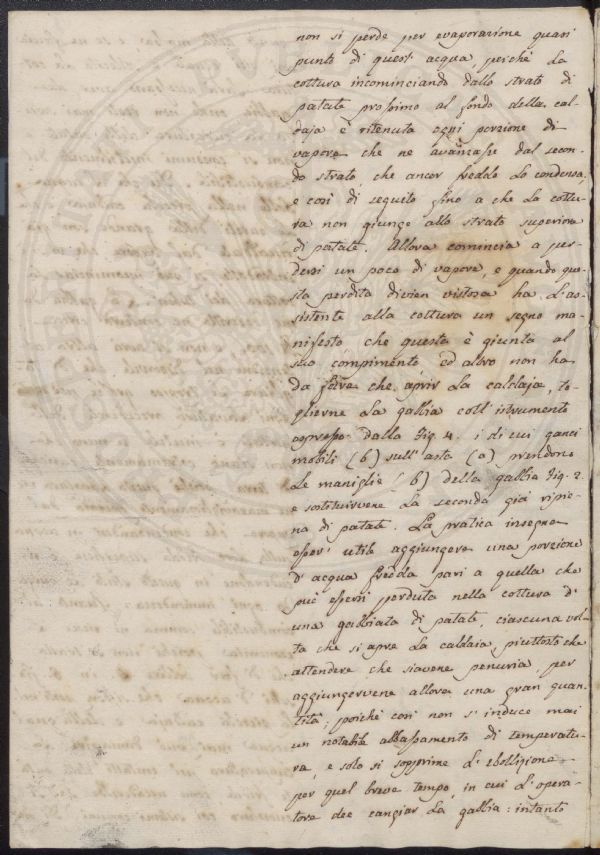 non si perde per evaporazione quasi
punto di quest' acqua, perchè la
cottura incominciando dallo strato di
patate prossimo al fondo della cal-
daja è ritenuta ogni porzione di
vapore che ne avanzasse dal secon-
do strato, che ancor freddo lo condensa,
e così di seguito fino a che la cottu-
ra non giunge allo strato superiore
di patate. Allora comincia a per-
dersi un poco di vapore, e quando que-
sta perdita divien vistosa ha l'as-
sistente alla cottura un segno ma-
nifesto che questa è giunta al
suo compimento ed altro non ha
da fare che aprir la caldaja, to-
glierne la gabbia coll' istrumento
espresso dalla Fig. 4. i di cui ganci
mobili (b) sull' asta (a) prendono
le maniglie (b) della gabbia Fig. 2.
e sostituirvene la seconda già ripie-
na di patate. La pratica insegna
esser' utile aggiungere una porzione
d' acqua fredda pari a quella che
può essersi perduta nella cottura d'
una gabbiata di patate, ciascuna vol-
ta che si apre la caldaia, piuttosto che
attendere che siavene penuria, per
aggiungervene allora una gran quan-
tità; poichè così non s' induce mai
un notabile abbassamento di temperatu-
ra, e solo si sopprime l' ebollizione
per quel breve tempo, in cui l' opera-
tore dee cangiar la gabbia: intanto